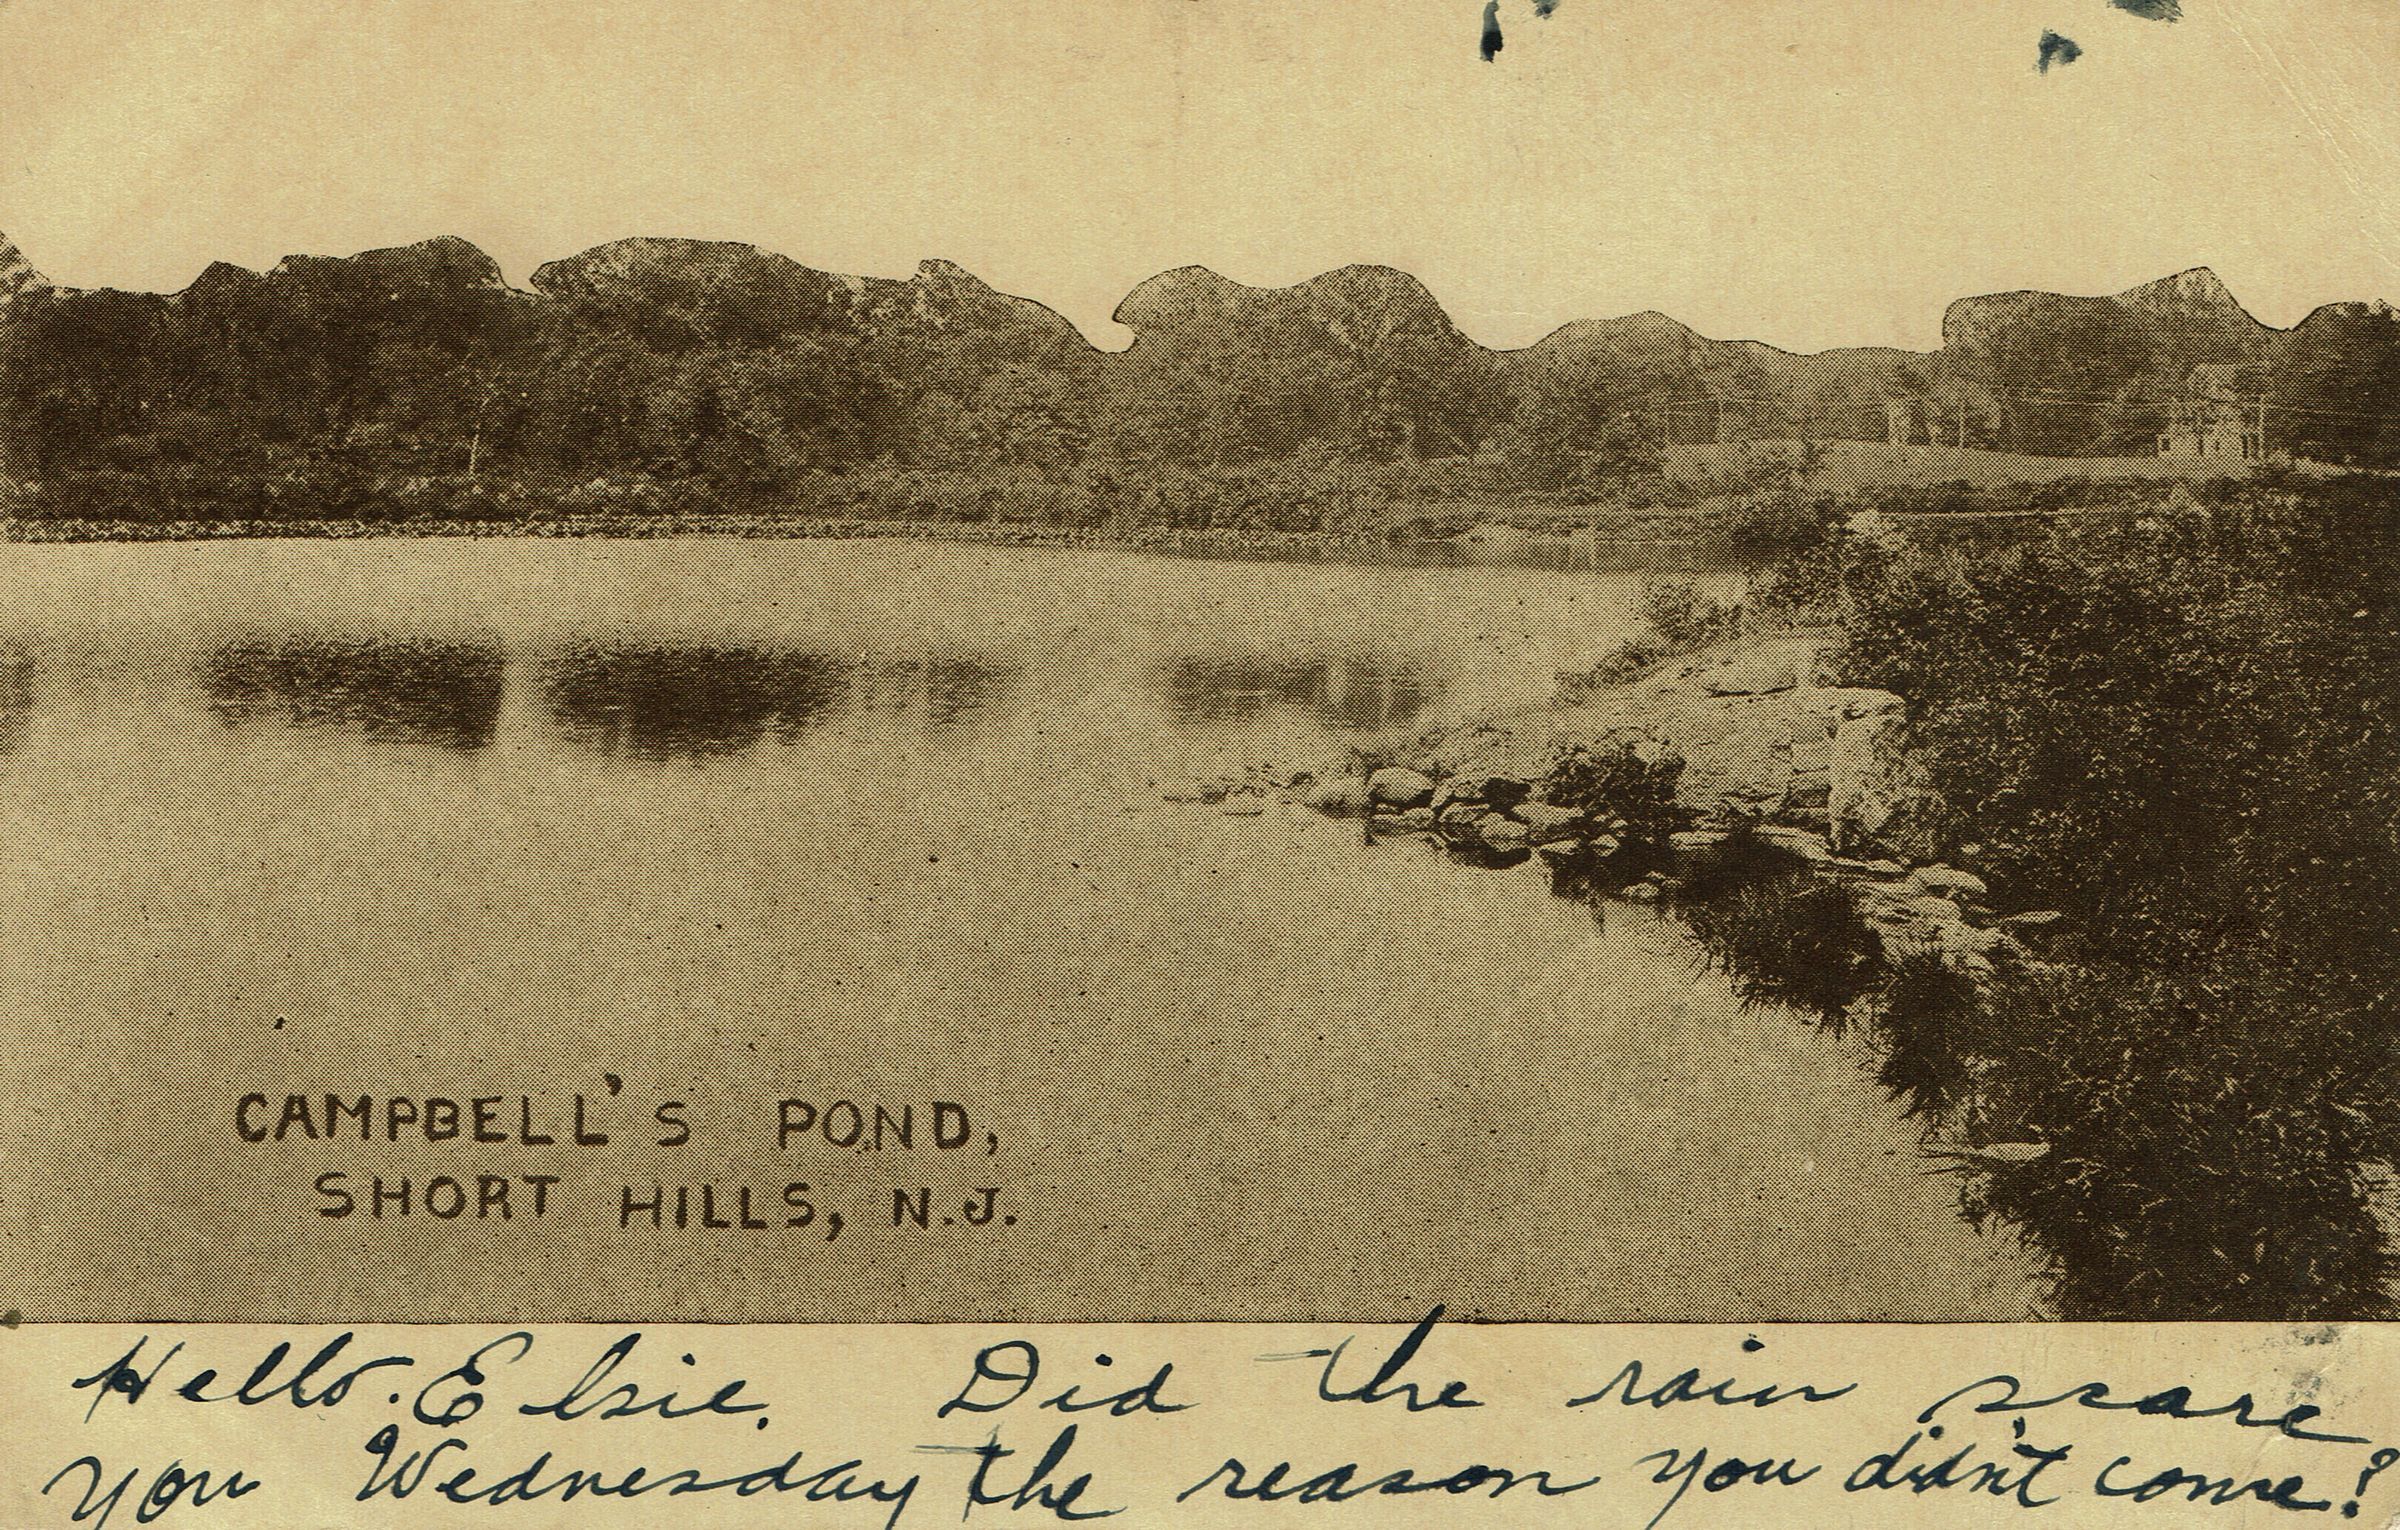 CAMPBELL'S POND,
SHORT HILLS, N.J.
Hello. Elsie. Did the rain scare
you Wednesday the reason you didn't come?